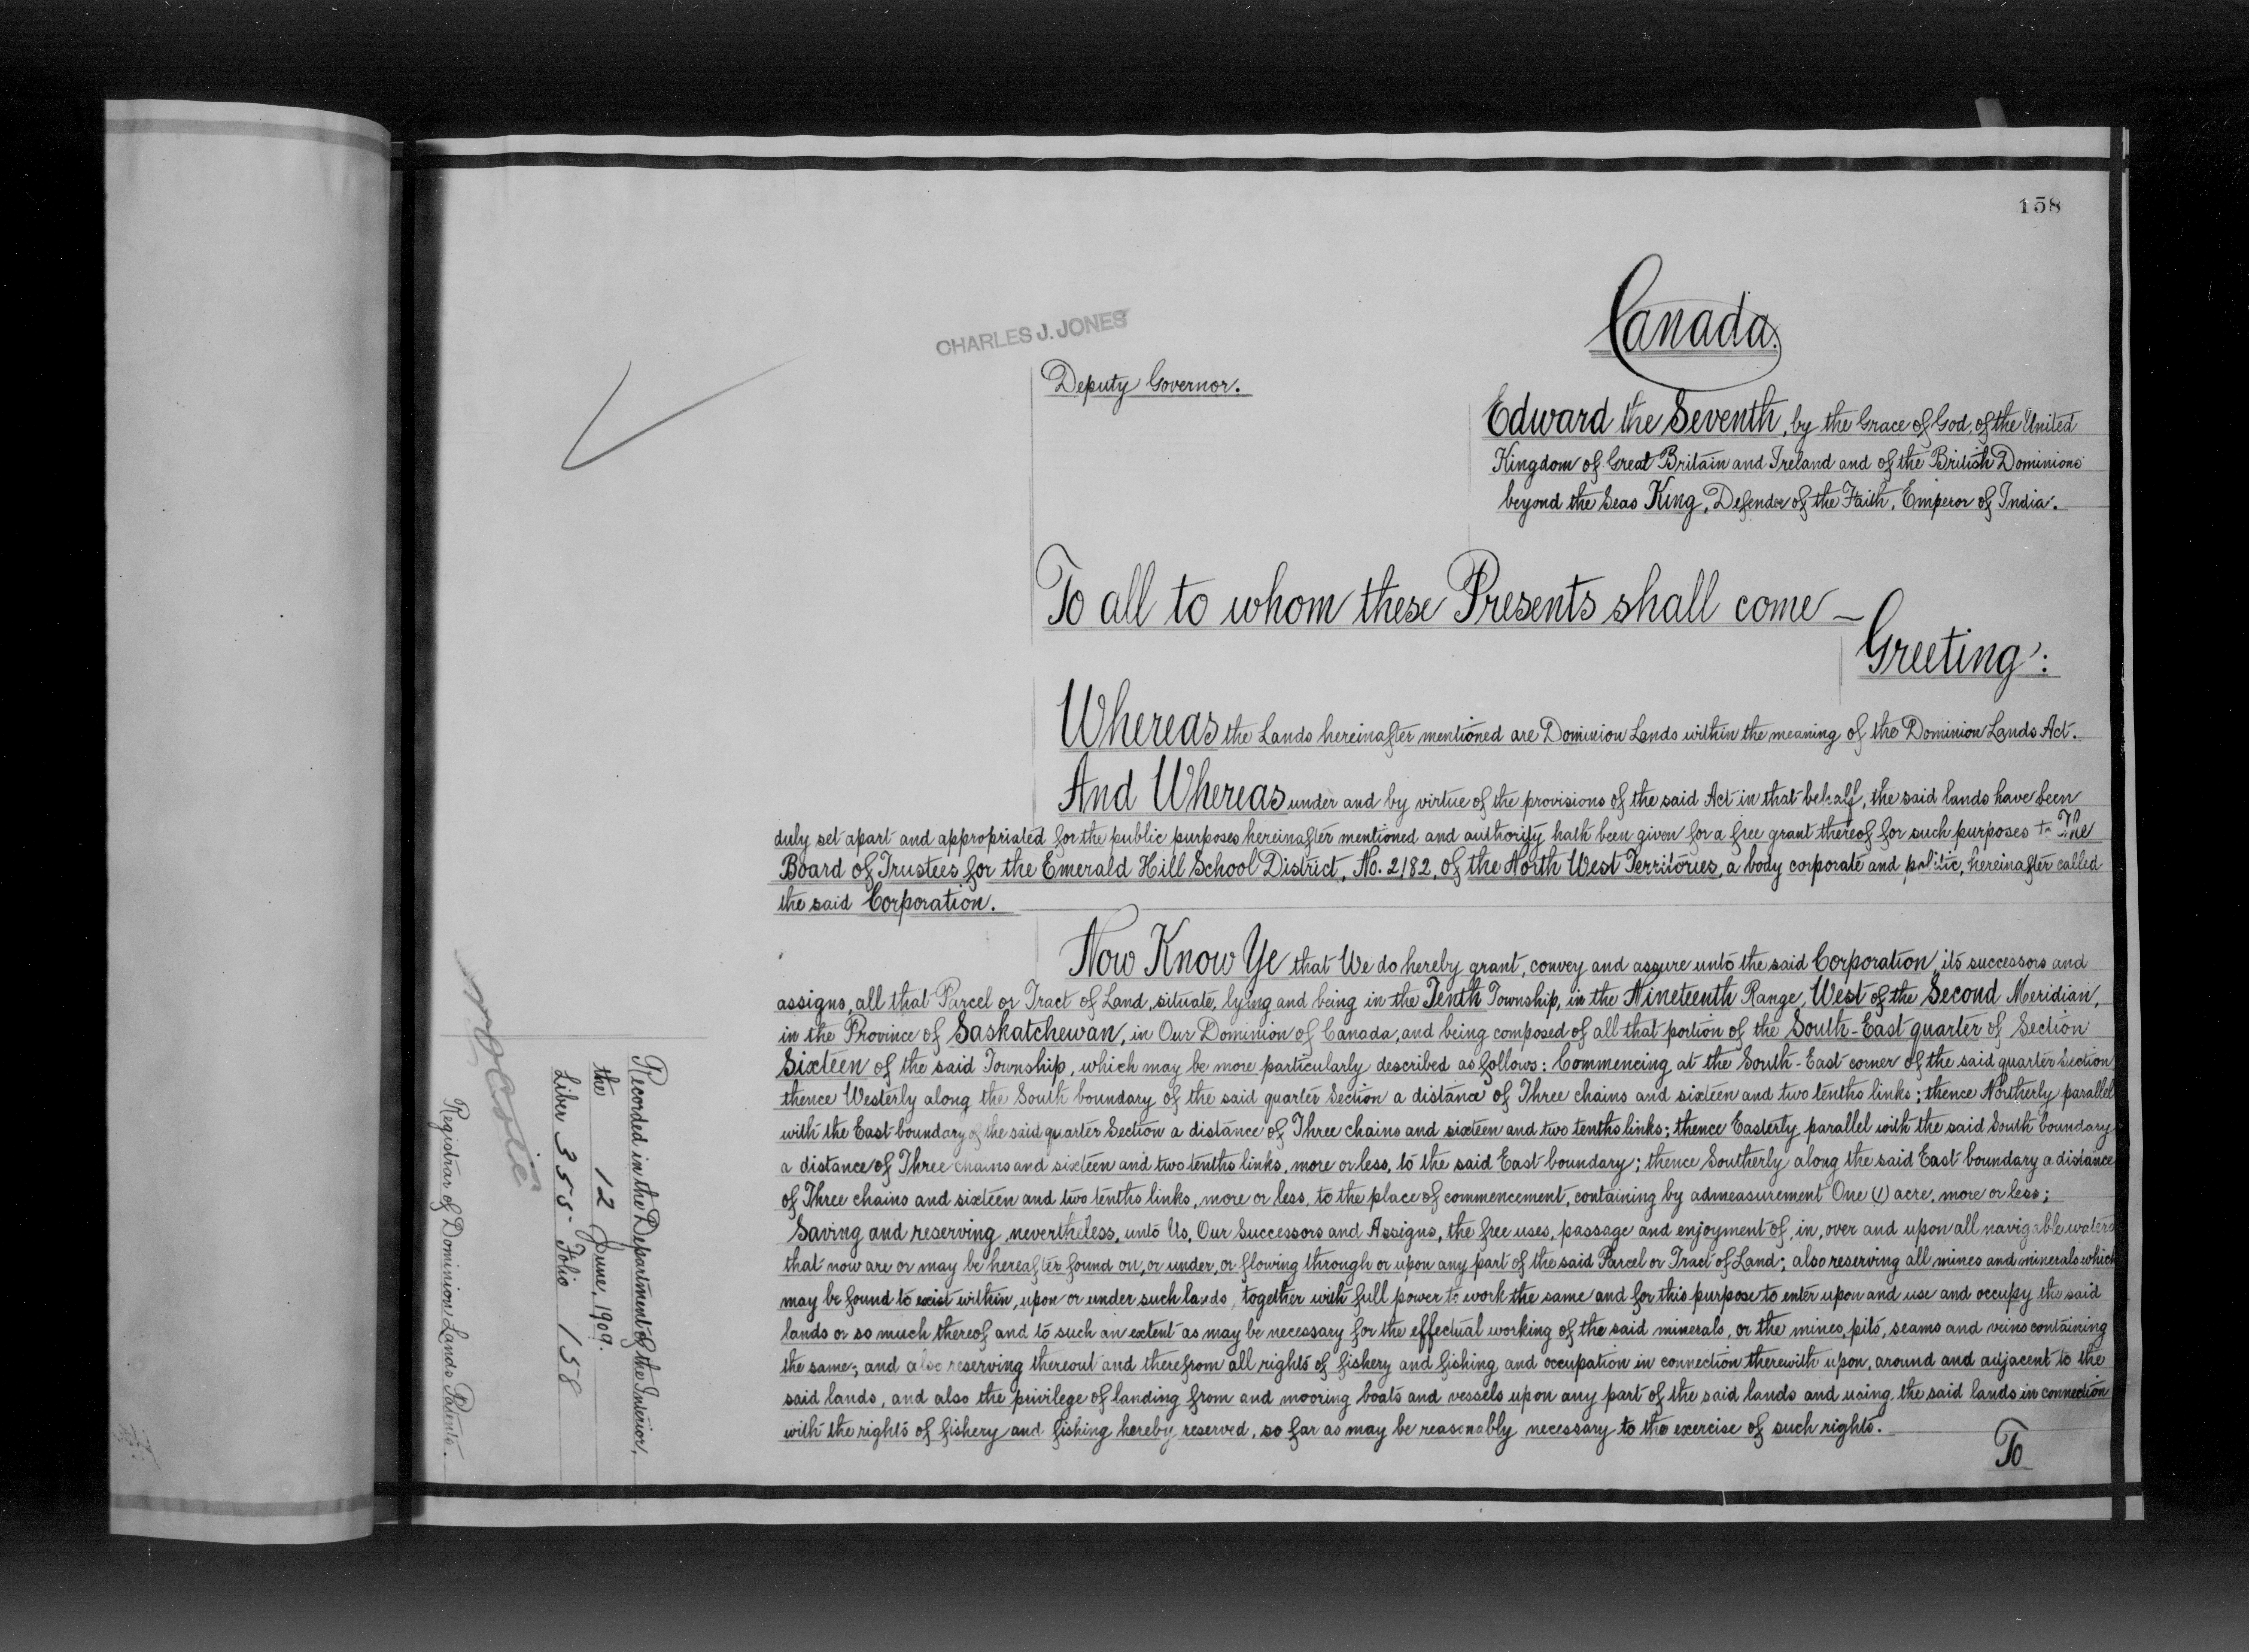 158
Canada.
CHARLES J. JONES
Deputy Governor.
Edward the Seventh, by the Grace of God, of the United
Kingdom of Great Britain and Ireland and of the British Dominions
beyond the Seas King, Defender of the Faith, Emperor of India.
To all to whom these Presents shall come —
Greeting:
Whereas the Lands hereinafter mentioned are Dominion Lands within the meaning of the Dominion Lands Act.
And Whereas under and by virtue of the provisions of the said Act in that behalf, the said lands have been
duly set apart and appropriated for the public purposes hereinafter mentioned and authority hath been given for a free grant thereof for such purposes to The
Board of Trustees for the Emerald Hill School District, No. 2182, of the North West Territories, a body corporate and politic, hereinafter called
the said Corporation.
Now Know Ye that We do hereby grant, convey and assure unto the said Corporation, its successors and
assigns, all that Parcel or Tract of Land, situate, lying and being in the Tenth Township, in the Nineteenth Range, West of the Second Meridian,
in the Province of Saskatchewan, in Our Dominion of Canada, and being composed of all that portion of the South-East quarter of Section
Sixteen of the said Township, which may be more particularly described as follows: Commencing at the South-East corner of the said quarter Section
thence Westerly along the South boundary of the said quarter Section a distance of Three chains and sixteen and two tenths links; thence Northerly parallel
with the East boundary of the said quarter Section a distance of Three chains and sixteen and two tenths links; thence Easterly parallel with the said South boundary
a distance of Three chains and sixteen and two tenths links, more or less, to the said East boundary; thence Southerly along the said East boundary a distance
of Three chains and sixteen and two tenths links, more or less, to the place of commencement, containing by admeasurement One (1) acre, more or less;
Saving and reserving, nevertheless, unto Us, Our Successors and Assigns, the free uses, passage and enjoyment of, in, over and upon all navigable waters
that now are or may be hereafter found on, or under, or flowing through or upon any part of the said Parcel or Tract of Land; also reserving all mines and minerals which
may be found to exist within, upon or under such lands, together with full power to work the same and for this purpose to enter upon and use and occupy the said
lands or so much thereof and to such an extent as may be necessary for the effectual working of the said minerals, or the mines, pits, seams and veins containing
the same; and also reserving thereout and therefrom all rights of fishery and fishing and occupation in connection therewith upon, around and adjacent to the
said lands, and also the privilege of landing from and mooring boats and vessels upon any part of the said lands and using the said lands in connection
with the rights of fishery and fishing hereby reserved, so far as may be reasonably necessary to the exercise of such rights.
To
Recorded in the Department of the Interior,
the 12 June, 1909.
Liber 355 Folio 158
Registrar of Dominion Lands Patents.